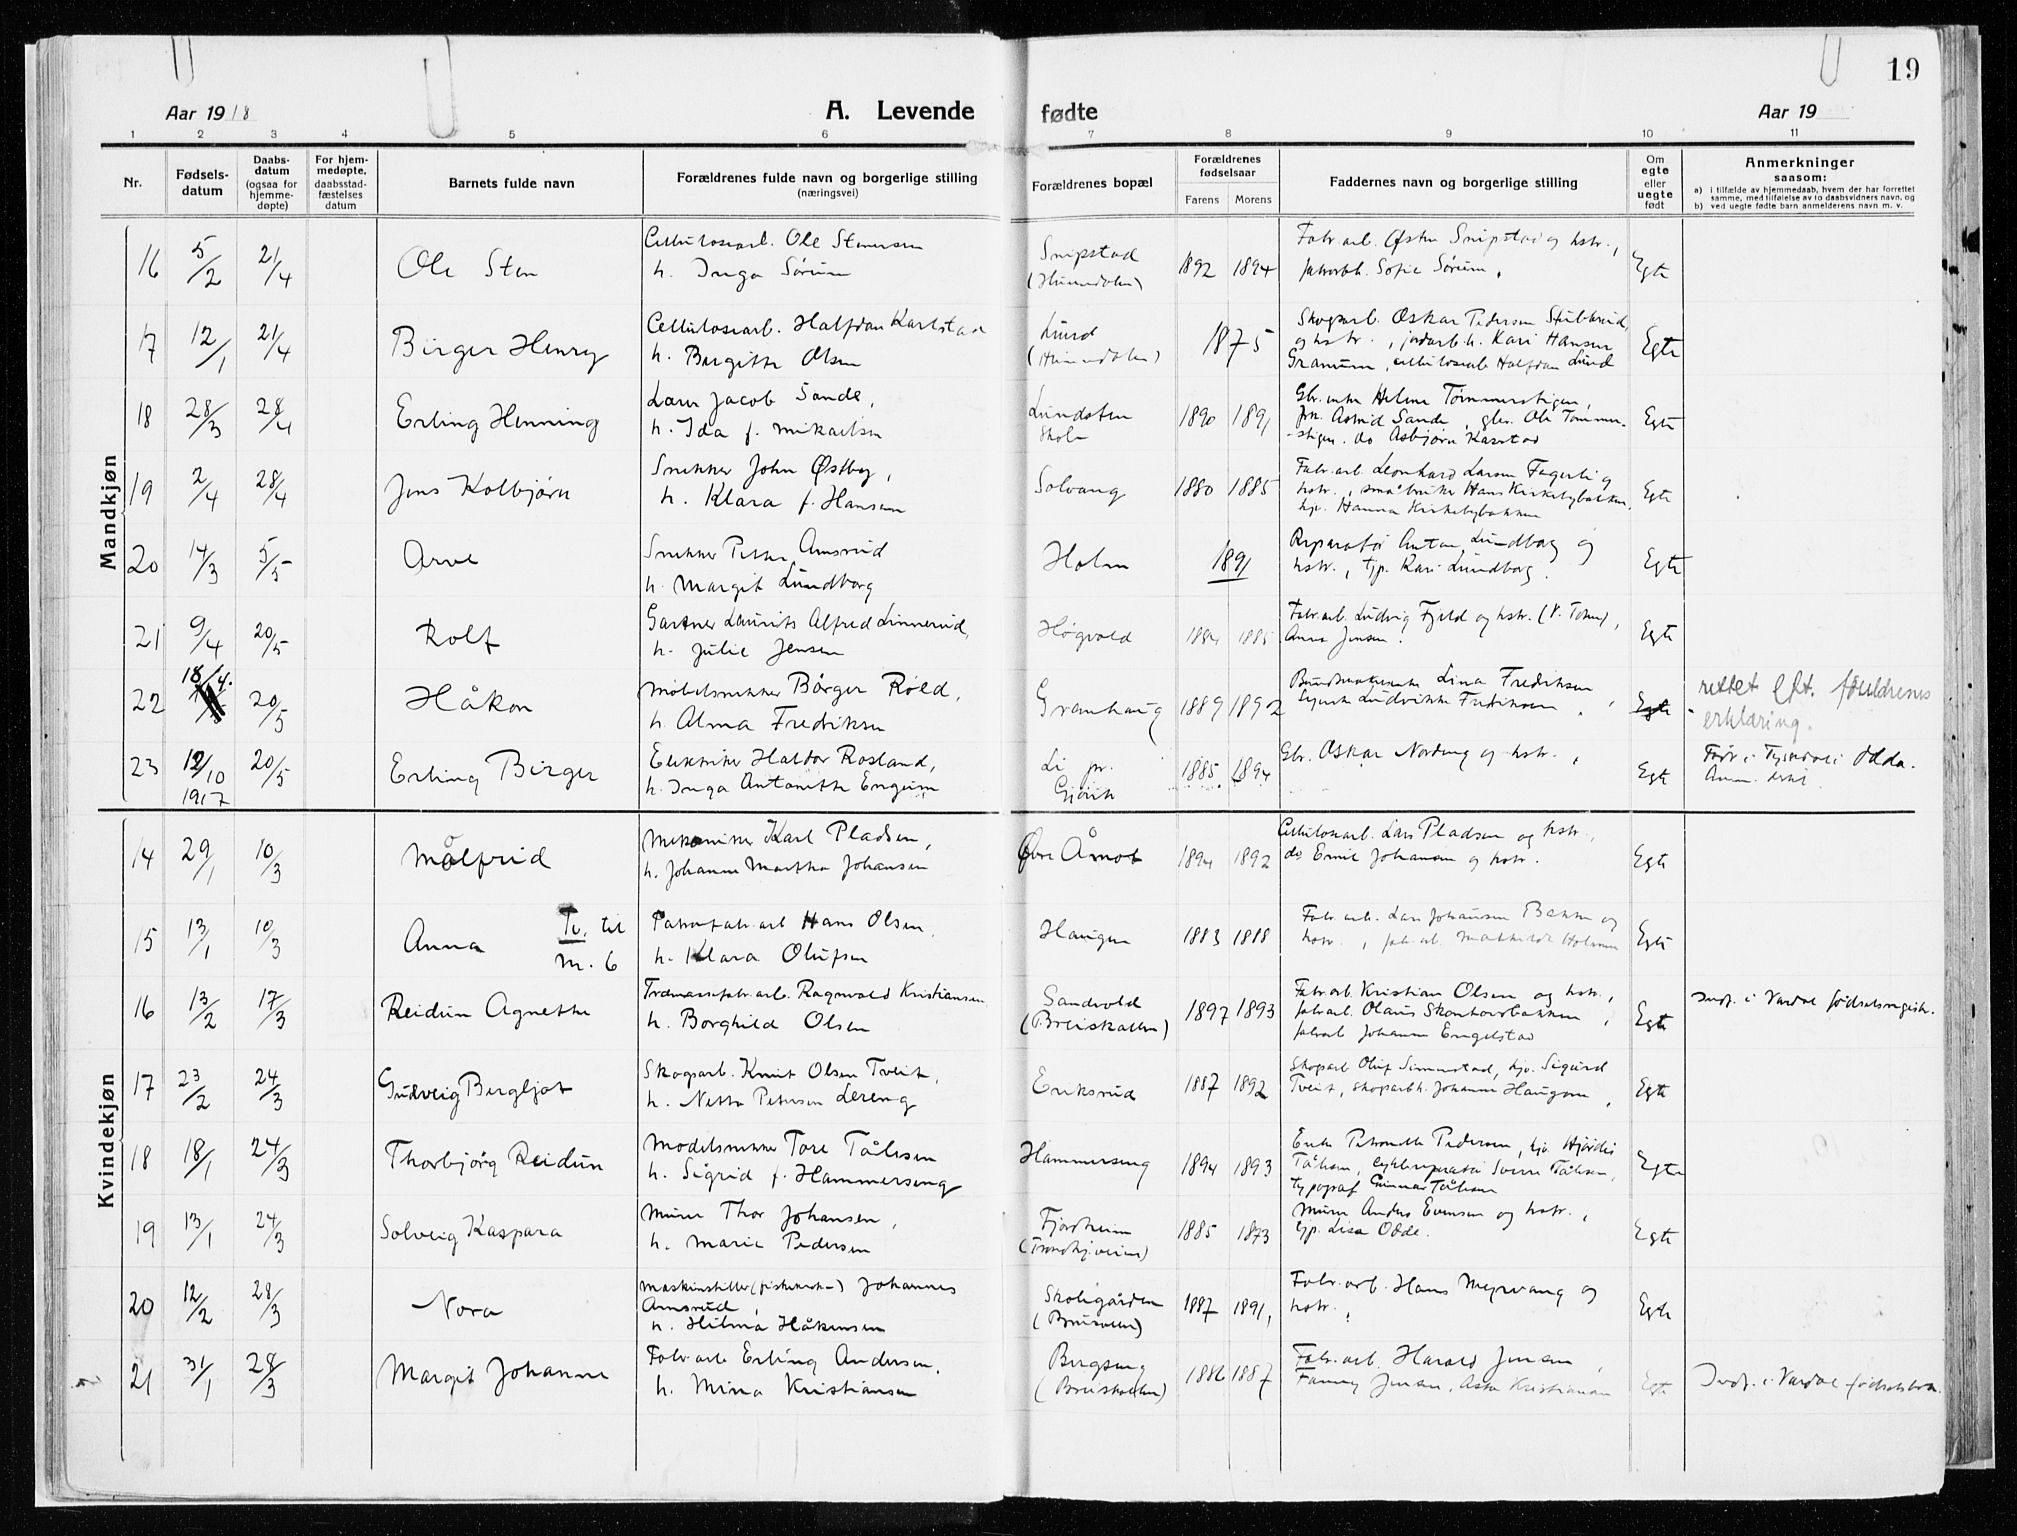 19
Aar 1918
A. Levende fødte
Aar 19
1 2 3 4 5 6 7 8 9 10 11
Nr.
Fødsels-
datum
Daabs-
datum
(ogsaa for
hjemme-
døpte)
For hjem-
medøpte,
daabsstad-
fæstelses
datum
Barnets fulde navn
Forældrenes fulde navn og borgerlige stilling
(næringsvei)
Forældrenes bopæl
Forældrenes
fødselsaar
Farens Morens
Faddernes navn og borgerlige stilling
Om
egte
eller
uegte
født
Anmerkninger
saasom:
a) i tilfælde av hjemmedaab, hvem der har forrettet
samme, med tilføielse av to daabsvidners navn, og
b) ved uegte fødte barn anmelderens navn m. v.
Mandkjøn
16 5/2 21/4 Ole Sten
Cellulosearb. Ole Stenersen
h. Inga Sørum
Snipstad
(Hunndalen)
1892 1894
Fabr.arb. Østen Snipstad og hstr.,
fabrarbh. Sofie Sørum,
Egte
17 12/1 21/4 Birger Henry
Cellulosearb. Halfdan Karlstad
h. Birgitte Olsen
Lund
(Hunndalen)
1875
Skogsarb. Oskar Pedersen Stubberud,
og hstr., jordarb.h. Kari Hansen
Granum, cellulosearb Halfdan Lund
Egte
18 28/3 28/4 Erling Henning
Lærer Jacob Sande,
h. Ida f. Mikaelsen
Lundsten
skole
1890 1891
Gbr.enke Helene Tømmerstigen,
frk. Astrid Sande, gbr. Ole Tømmer-
-stigen. do Asbjørn Kasstad
Egte
19 2/4 28/4 Jens Kolbjørn
Snekker John Østby,
h. Klara f. Hansen
Solvang
1880 1885
Fabr.arb. Leonhard Larsen Fagerli og
hstr., småbruker Hans Kirkebybakken,
hp. Hanna Kirkebybakken
Egte
20 14/3 5/5 Arve
Snekker Petter Amsrud
h. Margit Lundborg
Holm
1891
Reparatør Anton Lundborg og
hstr., tjp. Kari Lundborg.
Egte
21 9/4 20/5 Rolf
Gartner Laurits Alfred Linnerud,
h. Julie Jensen
Høgvold
1884 1885
Fabr.arb. Ludvig Fjeld og hstr. (V. Toten),
Anna Jensen.
Egte
22 18/4. 20/5 Håkon
Møbelsnekker Børger Røld,
h. Alma Fredriksen
Granhaug
1889 1892
Lina Fredriksen
Syerske Ludvikke Fredriksen,
Egte
rettet eft. foreldrenes
erklæring.
23 12/10 1917 20/5 Erling Birger
Elektriker Haldor Rosland,
h. Inga Antonette Engum
Li pr.
Gjøvik
1885 1894
Gbr. Oskar Nordeng og hstr.,
Egte
Født i Tyssedal i Odda.
Anm. dertil
Kvindekjøn
14 29/1 10/3 Målfrid
Mekaniker Karl Pladsen,
h. Johanne Martha Johansen
Øvre Åmot
1894 1892
Cellulosearb. Lars Pladsen og hstr.,
do Emil Johansen og hstr.
Egte
15 13/1 10/3 Anna Tv. til
m. 6
Patronfabr.arb Hans Olsen,
h. Klara Olufsen
Haugen
1883 1888
Fabr.arb. Lars Johansen Bakken og
hstr., fabr.arb. Mathilde Holmen
Egte
16 13/2 17/3 Reidun Agnethe
Træmassefabr.arb. Ragnvald Kristiansen
h. Borghild Olsen
Sandvold
(Breiskallen)
1897 1893
Fabr.arb. Kristian Olsen og hstr.,
fabrarb. Olaus Skonhovdbakken,
fabrarb Johanne Engelstad
Egte
Indf. i Vardal fødselsregistr.
17 23/2 24/3 Gudveig Bergljot
Skogsarb. Knut Olsen Tveit,
h. Netta Petersen Lereng
Eriksrud
1887 1892
Skogsarb Oluf Simenstad, hjv. Sigurd
Tveit, skogsarbh. Johanne Haugom,
Egte
18 18/1 24/3 Thorbjørg Reidun
Modelsnekker Tore Tålesen
h. Sigrid f. Hammerseng
Hammerseng
1894 1893
Enke Petronelle Pedersen, hjv. Hjørdis
Tålesen, cyklereparatør Sverre Tålesen,
typograf Gunnar Tålesen
Egte
19 13/1 24/3 Solveig Kaspara
Murer Thor Johansen,
h. Marie Pedersen
Fjordheim
(Trondhjveien)
1885 1873
Murer Anders Evensen og hstr.,
tjp. Lisa Odde.
Egte
20 12/2 28/3 Nora
Maskinstiller (fiskekrok-) Johannes
Amsrud,
h. Hilma Håkensen
Skoligården
(Bruseveien)
1887 1891
Fabr.arb. Hans Myrvang og
hstr.,
Egte
21 31/1 28/3 Margit Johanne
Fabr.arb Erling Andersen,
h. Mina Kristiansen
Bergseng
(Breiskallen)
1886 1887
Fabr.arb. Harald Jensen,
Fanny Jensen, Asta Kristiansen
Egte
Indf. i Vardal fødselsbok.